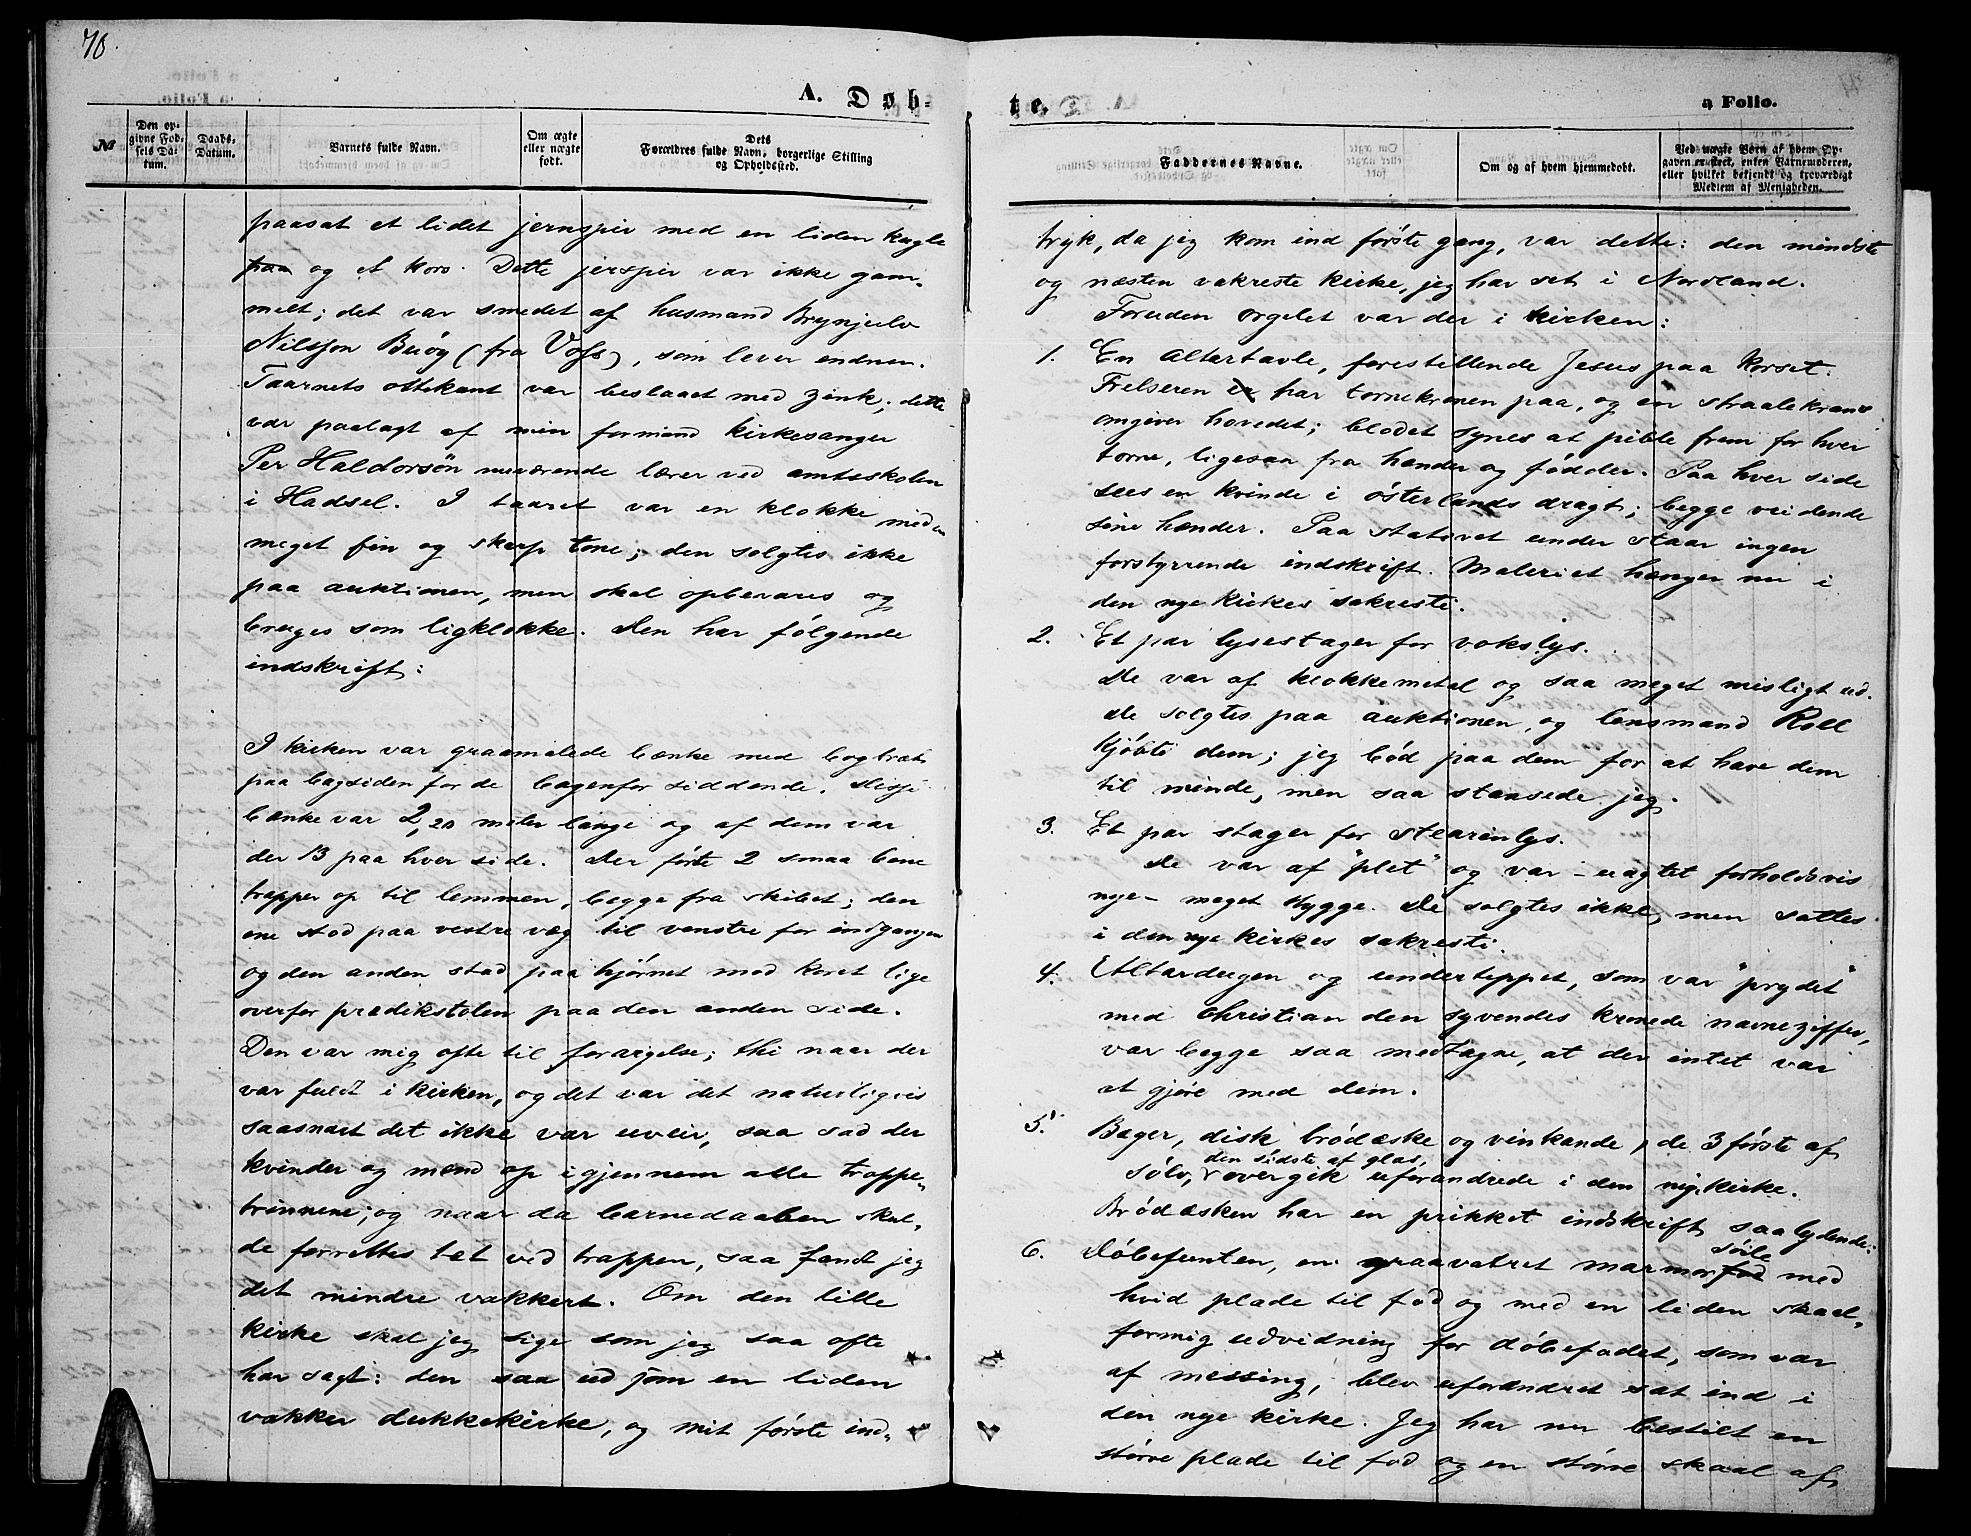 70.
A. Døb-
№
Den op-
givne Fød-
sels Da-
tum.
Daabs-
Datum.
Barnets fulde Navn.
Om ægte
eller uægte
født.
Dets
Forældres fulde Navn, borgerlige Stilling
og Opholdssted.
paasat et lidet jernspir med en liden kugle
paa og et kors. Dette jerspir var ikke gam-
melt; det var smedet af husmand Brynjulv
Nilsson Buøy (fra Voss), som lever endnu.
Taarnets ottekant var beslaaet med zink; dette
var paalagt af min formand kirkesanger
Per Haldorsøn nuværende lærer ved amtsskolen
i Hadsel. I taaret var en klokke med en
meget fin og skarp tone; den solgtes ikke
paa auktionen, men skal opbevares og
bruges som ligklokke. Den har følgende
indskrift:
I kirken var graamalede bænke med bogbræt
paa bagsiden for de bagenfor siddende. Disse
bænke var 2,20 meter lange og af dem var
der 13 paa hver side. Der førte 2 smaa bene
trapper op til lemmen, begge fra skibet; den
ene stod paa vestre væg til venstre for indgangen
og den anden stod paa hjørnet mod koret lige
overfor prædikstolen paa den anden side.
Den var mig ofte til forargelse; thi naar der
var fuldt i kirken, og det var det naturligvis
saasnart det ikke var uveir, saa sad der
kvinder og mænd op igjennem alle trappe-
trinnene; og naar da barnedaaben skul-
de forrettes tæt ved trappen, saa fandt jeg
det mindre vakkert. Om den lille
kirke skal jeg sige som jeg saa ofte
har sagt: den saa ud som en liden
vakker dukkekirke, og mit første ind-
te.
a Folio.
Faddernes Navne.
Om og af hvem hjemmedøbt.
Ved uægte Børn af hvem Op-
gaven er skeet, enten Barnemoderen,
eller hvilket bekjendt og troværdigt
Medlem af Menigheden.
tryk, da jeg kom ind første gang, var dette: den mindste
og næsten vakreste kirke, jeg har set i Nordland.
Foruden orgelet var der i kirken:
1. En altertavle, forestillende Jesus paa korset.
Frelseren er har tornekronen paa, og en straalekrans
omgiver hovedet; blodet synes at pible frem for hver
torne, ligesaa fra hænder og fødder. Paa hver side
sees en kvinde i østerlands dragt; begge vridende
sine hænder. Paa stativet under staar ingen
forstyrrende indskrift. Maleriet hænger nu i
den nye kirkes sakresti.
2. Et par lysestager for vokslys.
De var af klokkemetal og saa meget misligt ud.
De solgtes paa auktionen, og lensmand Roll
kjøbte dem; jeg bød paa dem for at have dem
til minde, men saa stansede jeg.
3. Et par stager for stearinlys.
De var af "plet" og var - uagtet forholdsvis
nye - meget stygge. De solgtes ikke, men sattes
i den nye kirkes sakresti.
4. Altardugen og undertæppet, som var "prydet"
med Christian den syvendes kronede navneziffer,
var begge saa medtagne, at der intet var
at gjøre med dem.
5. Bæger, disk brødæske og vinkande, de 3 første af
den sidste af glas,
sølv, overgik uforandrede i den nye kirke.
Brødæsken har en prikket indskrift saalydende:
søile
6. Døbefunten, en graavatret marmorfod med
hvid plade til fod og med en liden skaal-
formig udvidning for døbefadet, som var
af messing, blev uforandret sat ind i
den nye kirke. Jeg har nu bestilt en
større plade til fod og en større skaal af